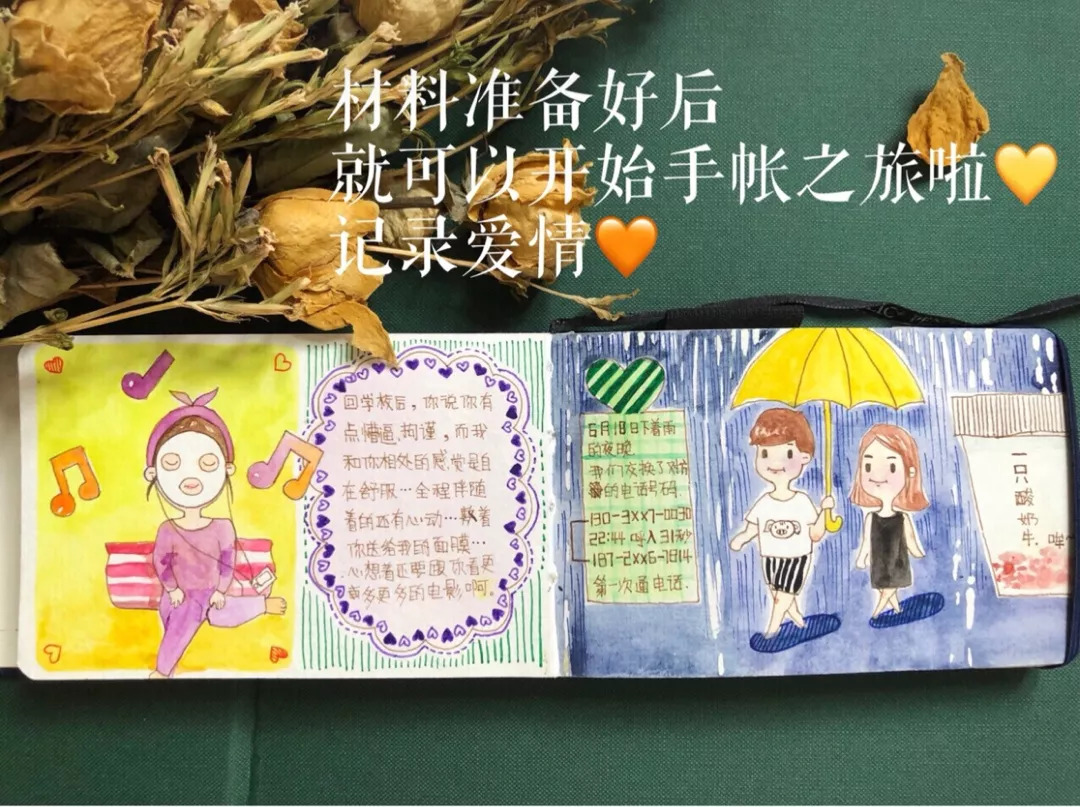 材料准备好后
就可以开始手帐之旅啦🧡
记录爱情🧡
回学校后，你说你有
点懵逼、拘谨，而我
和你相处的感觉是自
在舒服…全程伴随
着的还有心动…敷着
你送给我的面膜…
心想着还要跟你看更
多更多的电影呵。
6月18日下着雨
的夜晚
我们交换了对方
的电话号码.
130-3xx7-0030
22:44 呼入31秒
187-2xx6-7814
第一次通电话.
一只酸奶牛.